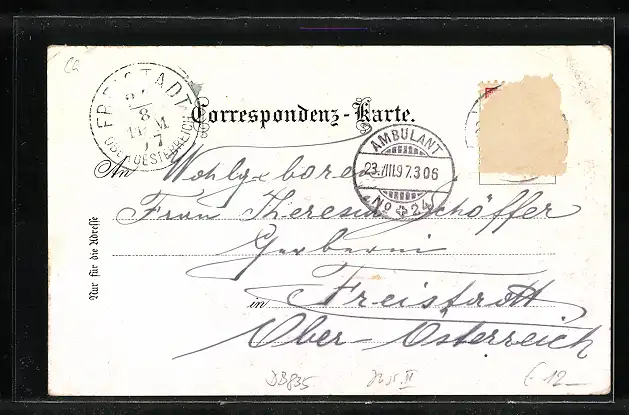 Correspondenz-Karte.
FREISTADT
8
OBEROESTERREICH
AMBULANT
23.VIII.97.306
No 24
An Wohlgeboren
Frau Theresia Schöffer
Gerberin
in Freistadt
Ober-Österreich
Nur für die Adresse
DB835
€ 12_